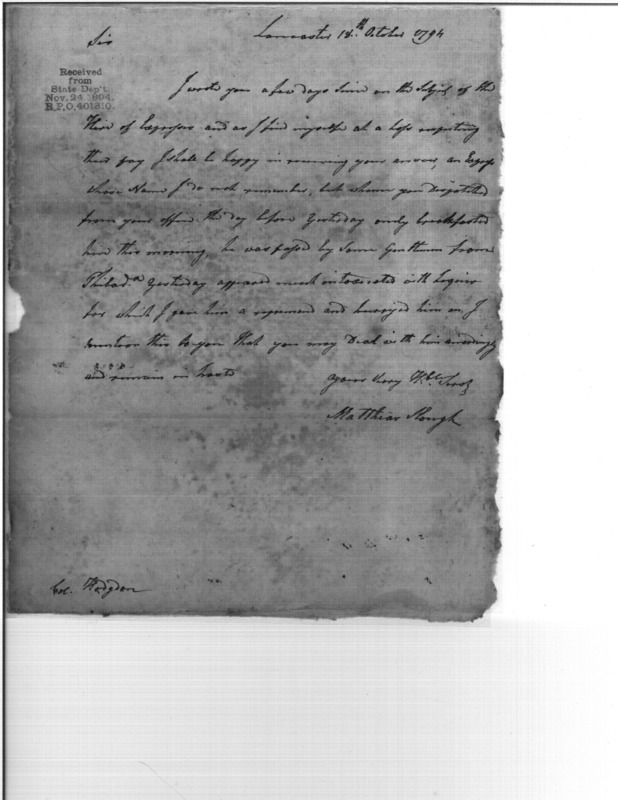 Lancaster 18th October 1794
Sir
Received
from
State Dep't.
Nov. 24. 1894.
R.P.O. 401310.
I wrote you a few days Since on the Subject of the
Hire of Expresses and as I find myself at a loss respecting
their pay I shall be happy in receiving your answer, an Express
whose Name I do not remember, but whom you Dispatched
from your office the day before Yesterday only breakfasted
here this morning, he was passed by Some Gentlemen from
Philada Yesterday appeared much intoxicated with Liquor
for which I gave him a reprimand and hurryed him on I
mention this to you that you may Deal with him accordingly
and remain in haste
Yours Very Hble Servt
Matthias Slough
Col. Hodgdon